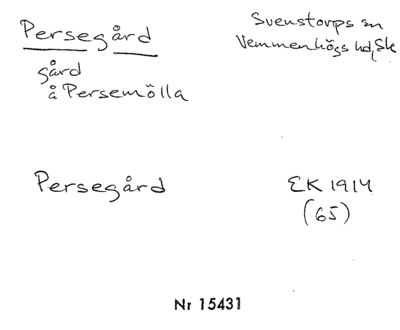 Persegård
Svenstorps sn
Vemmenhögs hd, Sk
gård
å Persemölla
Persegård
EK 1914
(65)
Nr 15431